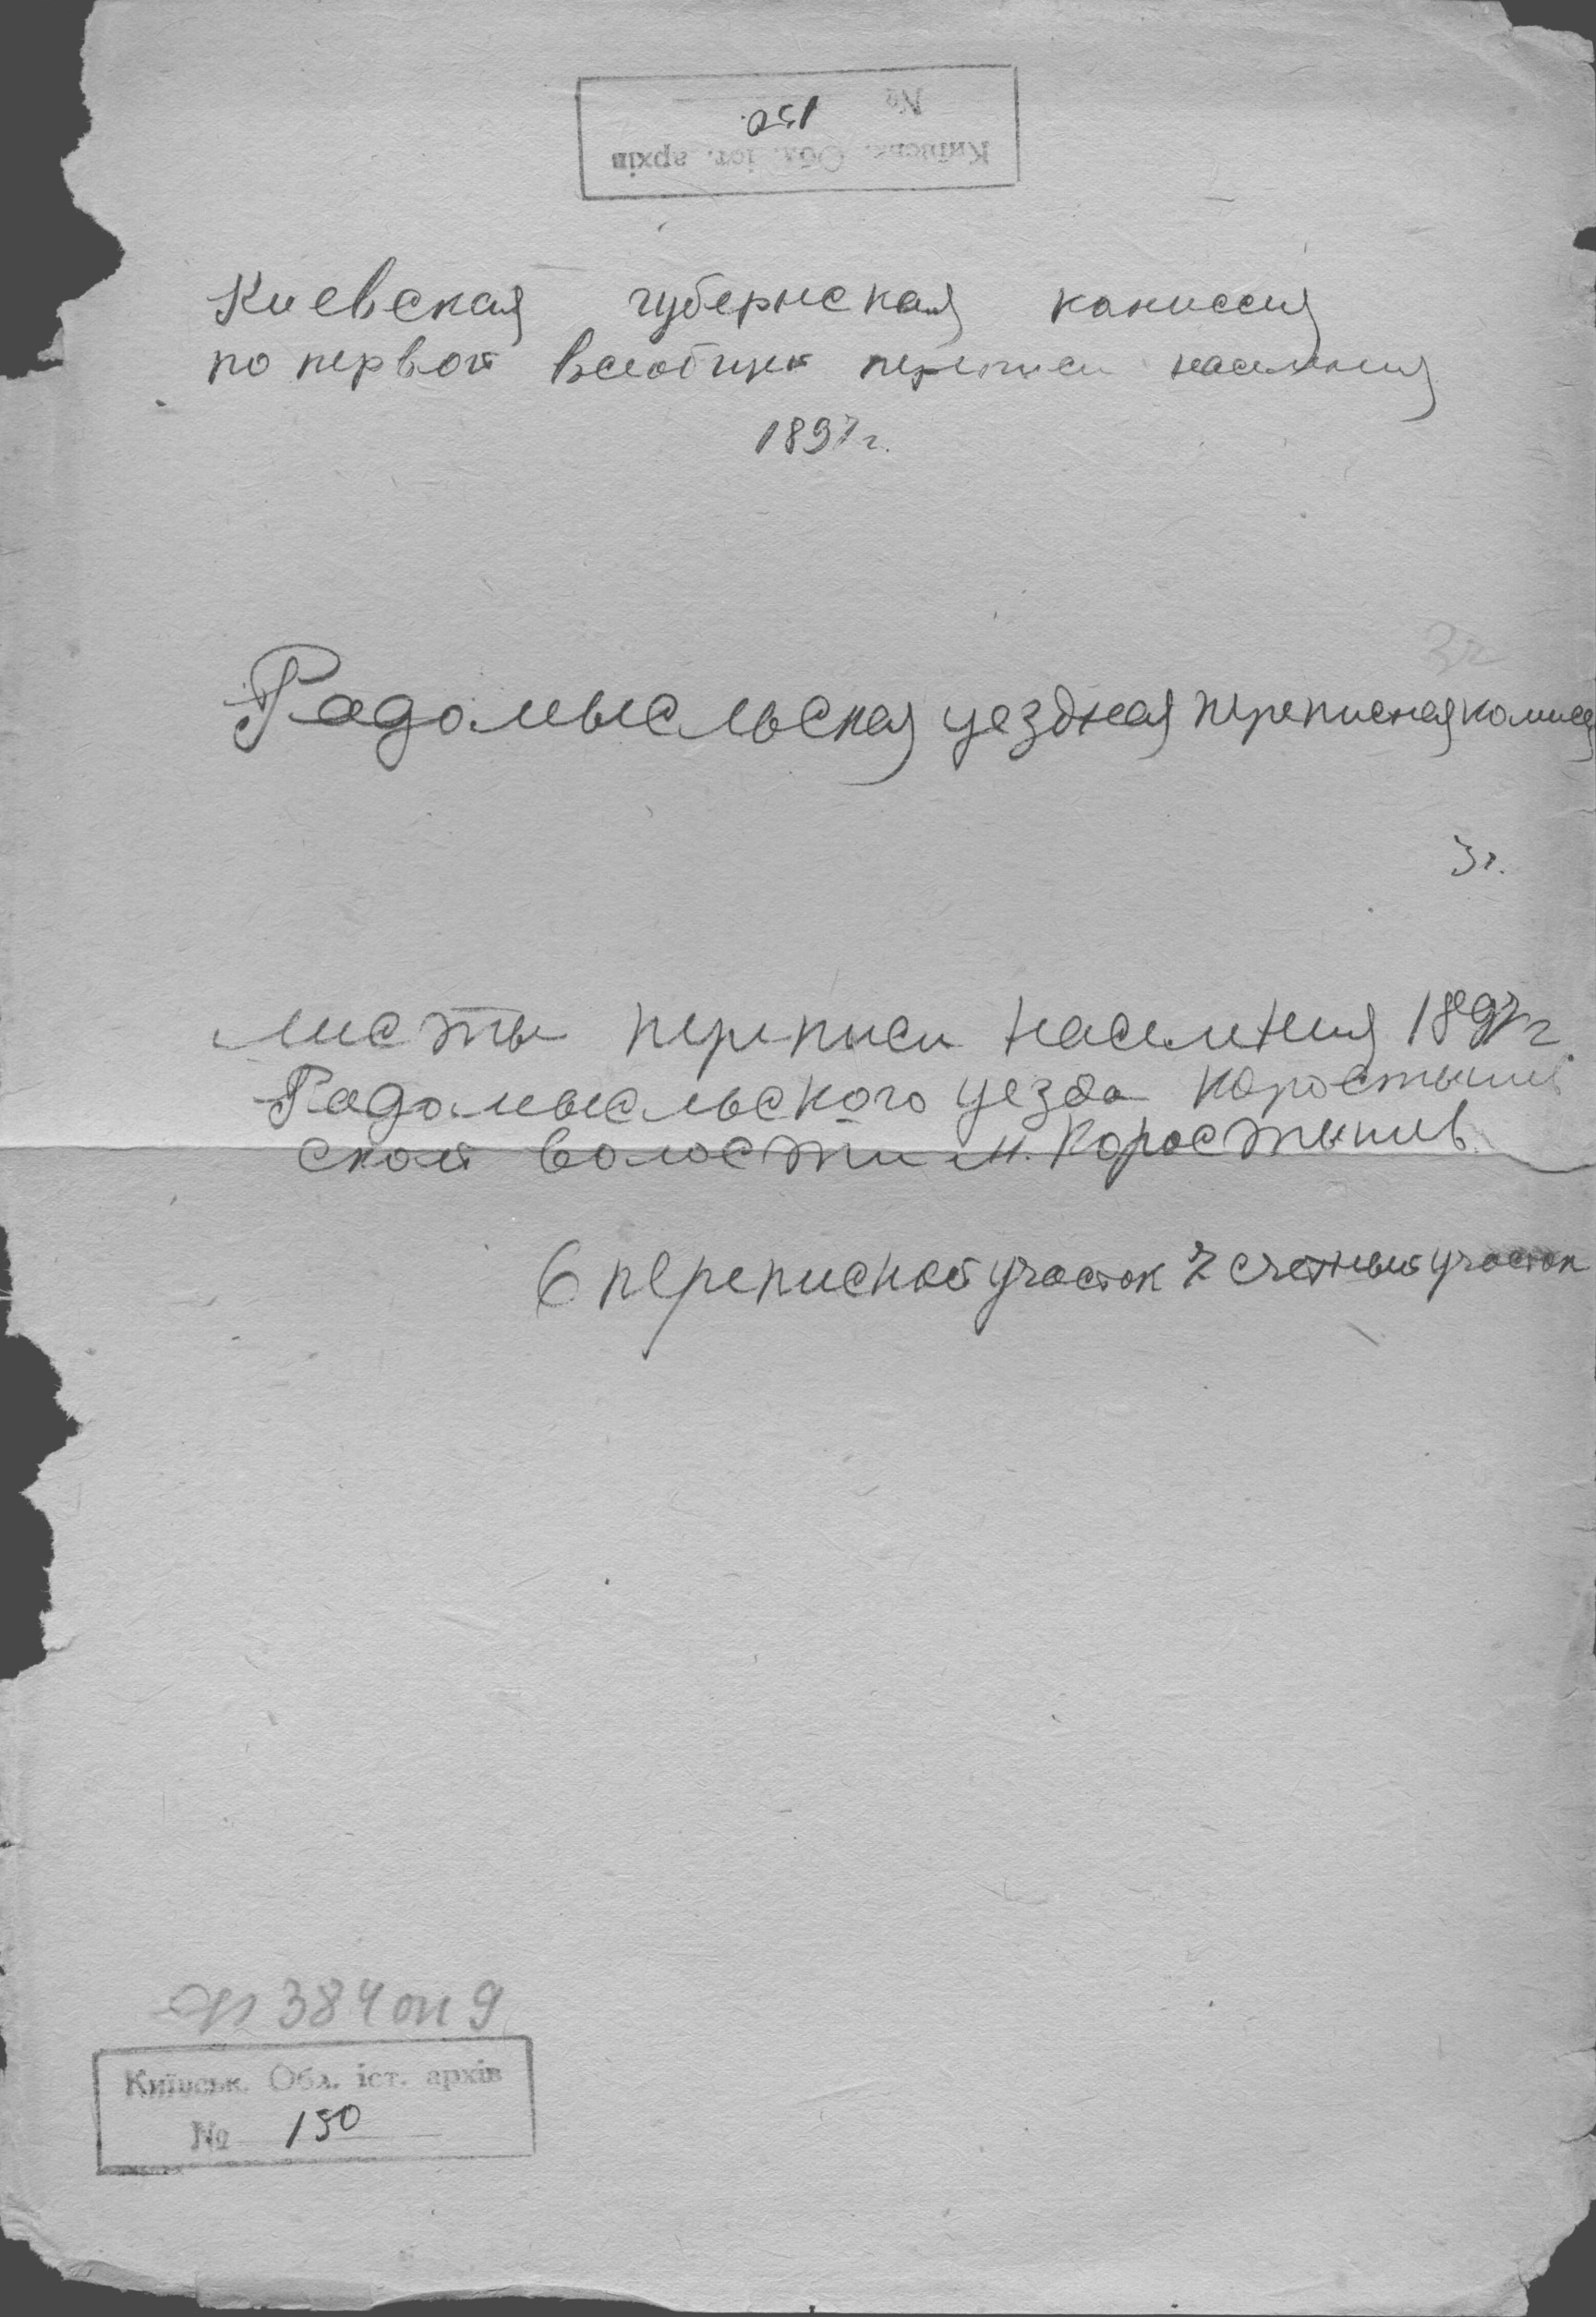 № 150
Київськ. Обл. іст. архів
Киевская губернская комиссия
по первой всеобщей переписи населения
1897 г.
3г
Радомысльская уездная переписная комисся
3г.
Листы переписи населения 1897 г.
Радомысльского уезда Коростыше
ской волости м. Коростышев
6 переписной участок 2 счетный участок
ф 384 оп 9
Київськ. Обл. іст. архів
№ 150